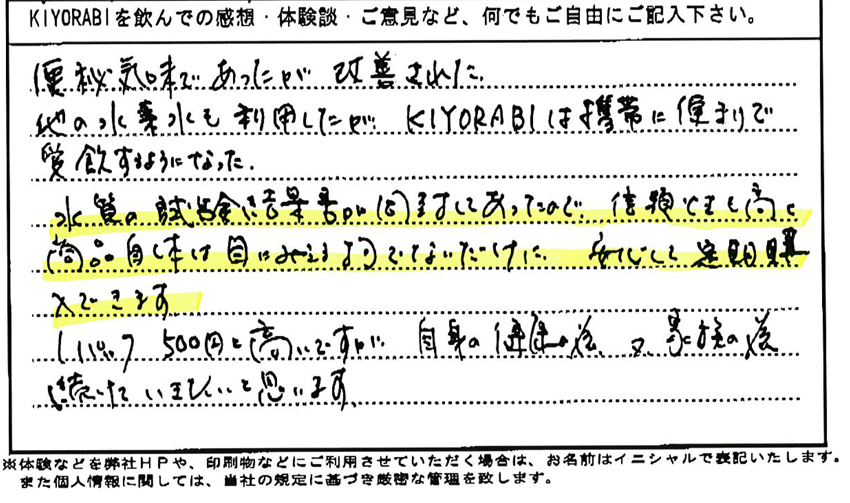 KIYORABIを飲んでの感想・体験談・ご意見など、何でもご自由にご記入下さい。
便秘気味であったが 改善された.
他の水素水も利用したが. KIYORABIは携帯に便利で
愛飲するようになった.
水質の試験結果書が同封してあったので. 信頼性も高く
商品自体は目にみえるようでないだけに. 安心して定期購
入できます
1パック 500円と高いですが 自身の健康の為、又、家族の為
続けていきたいと思います.
※体験などを弊社HPや、印刷物などにご利用させていただく場合は、お名前はイニシャルで表記いたします。
また個人情報に関しては、当社の規定に基づき厳密な管理を致します。